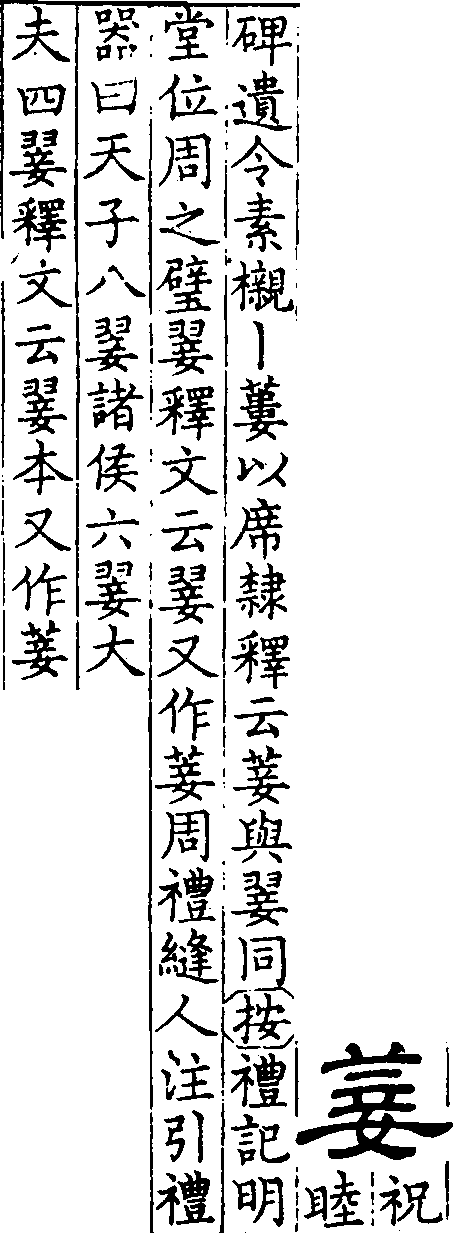 菨
祝
睦
碑遺令素櫬丨蔞以席隸釋云菨與翣同按禮記明
堂位周之璧翣釋文云翣又作菨周禮縫人注引禮
器曰天子八翣諸侯六翣大
夫四翣釋文云翣本又作菨